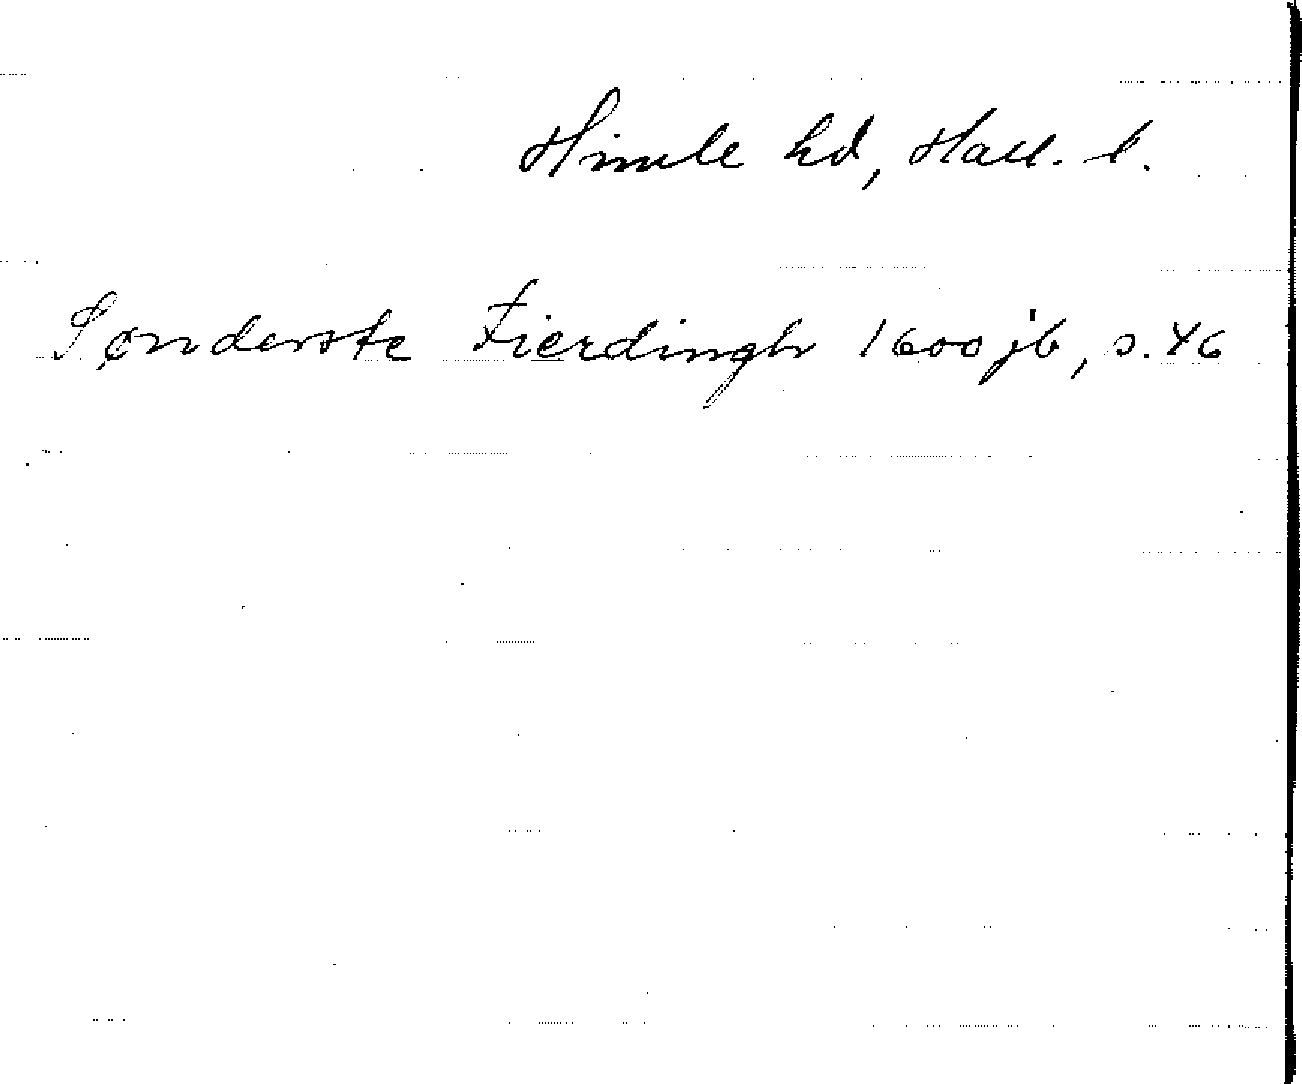 Himle hd, Hall. l.
Sønderste Fierdingh 1600 jb, s. 46